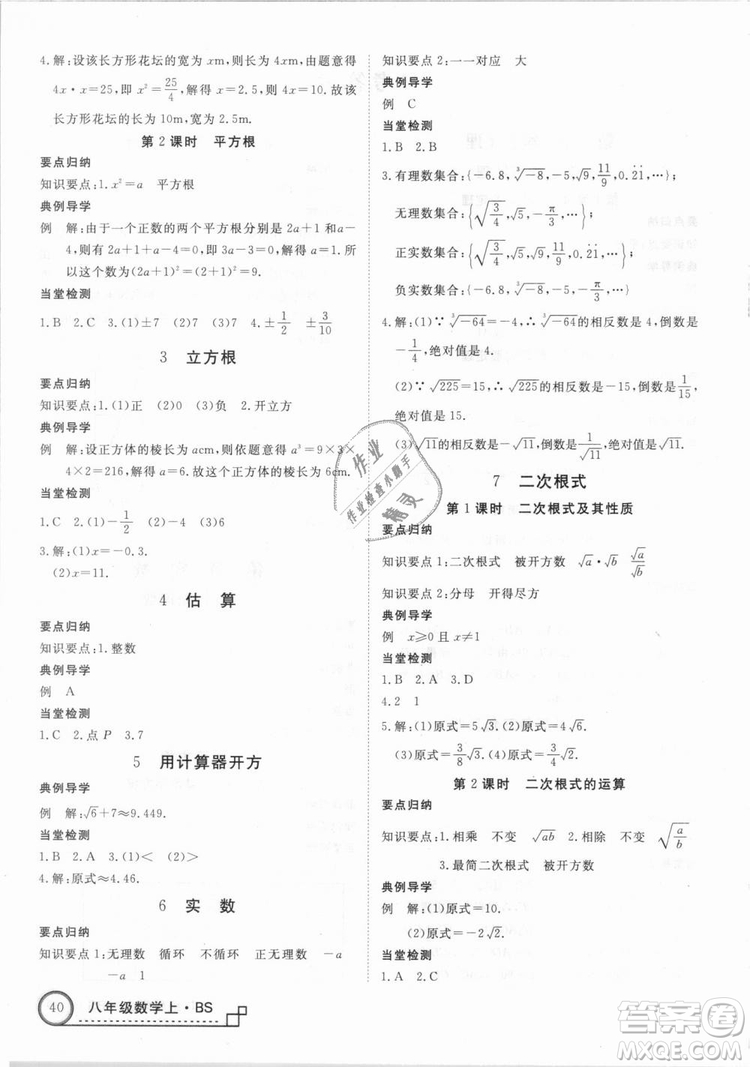 4.解:设该长方形花坛的宽为 xm,则长为 4xm,由题意得
4x·x=25,即 x²=25/4,解得 x=2.5,则 4x=10.故该
长方形花坛的长为 10m,宽为 2.5m.
第 2 课时　平方根
要点归纳
知识要点:x²=a　平方根
典例导学
例　解:由于一个正数的两个平方根分别是 2a+1 和 a-
4,则有 2a+1+a-4=0,即 3a-3=0,解得 a=1.所
以这个数为(2a+1)²=(2+1)²=9.
当堂检测
1.B　2.C　3.(1)±7　(2)7　4.±1/2　±3/10
3　立方根
要点归纳
知识要点:1.(1)正　(2)0　(3)负　2.开立方
典例导学
例　解:设正方体的棱长为 acm,依题意得 a³=9×3×
4×2=216,解得 a=6.故这个正方体的棱长为 6cm.
当堂检测
1.C　2.(1)-1/2　(2)9　(3)6
3.解:(1)x=-0.3.
(2)x=11.
4　估　算
要点归纳
知识要点:1.整数
典例导学
例　A
当堂检测
1.C　2.点 P　3.7
5　用计算器开方
典例导学
例　解:√6+7≈9.449.
当堂检测
1.B　2.A　3.(1)<　(2)>
4.解:原式≈4.46.
6　实　数
要点归纳
知识要点 1:无理数　循环　不循环　正无理数　-a
-a　1
40
八年级数学上·BS
知识要点 2:一一对应　大
典例导学
例　C
当堂检测
1.B　2.B
3.有理数集合:{-6.8,∛-8,11/9,0.2̇1̇,…}
无理数集合:{√(3/4),√5,-π/3,…}
正实数集合:{√(3/4),√5,√9,11/9,0.2̇1̇,…}
负实数集合:{-6.8,∛-8,-π/3,…}
4.解:(1)∵∛-64=-4,∴∛-64的相反数是 4,倒数是
-1/4,绝对值是 4.
(2)∵√225=15,∴√225的相反数是-15,倒数是1/15,
绝对值是 15.
(3)√11的相反数是-√11,倒数是1/√11,绝对值是√11.
7　二次根式
第 1 课时　二次根式及其性质
要点归纳
知识要点 1:二次根式　被开方数　√a·√b　√a/√b
知识要点 2:分母　开得尽方
典例导学
例　x≥0 且 x≠1
当堂检测
1.B　2.A　3.D
4.2　1
5.解:(1)原式=5√3.(2)原式=4√6.
(3)原式=3/8√3.(4)原式=3/4√2.
第 2 课时　二次根式的运算
要点归纳
知识要点:1.相乘　不变　√ab　2.相除　不变　√(a/b)
3.最简二次根式　被开方数
典例导学
例　解:(1)原式=10.
(2)原式=-4√2.
当堂检测
1.A　2.C
作业
作业检查小助手
精灵
答案圈
MXQE.COM